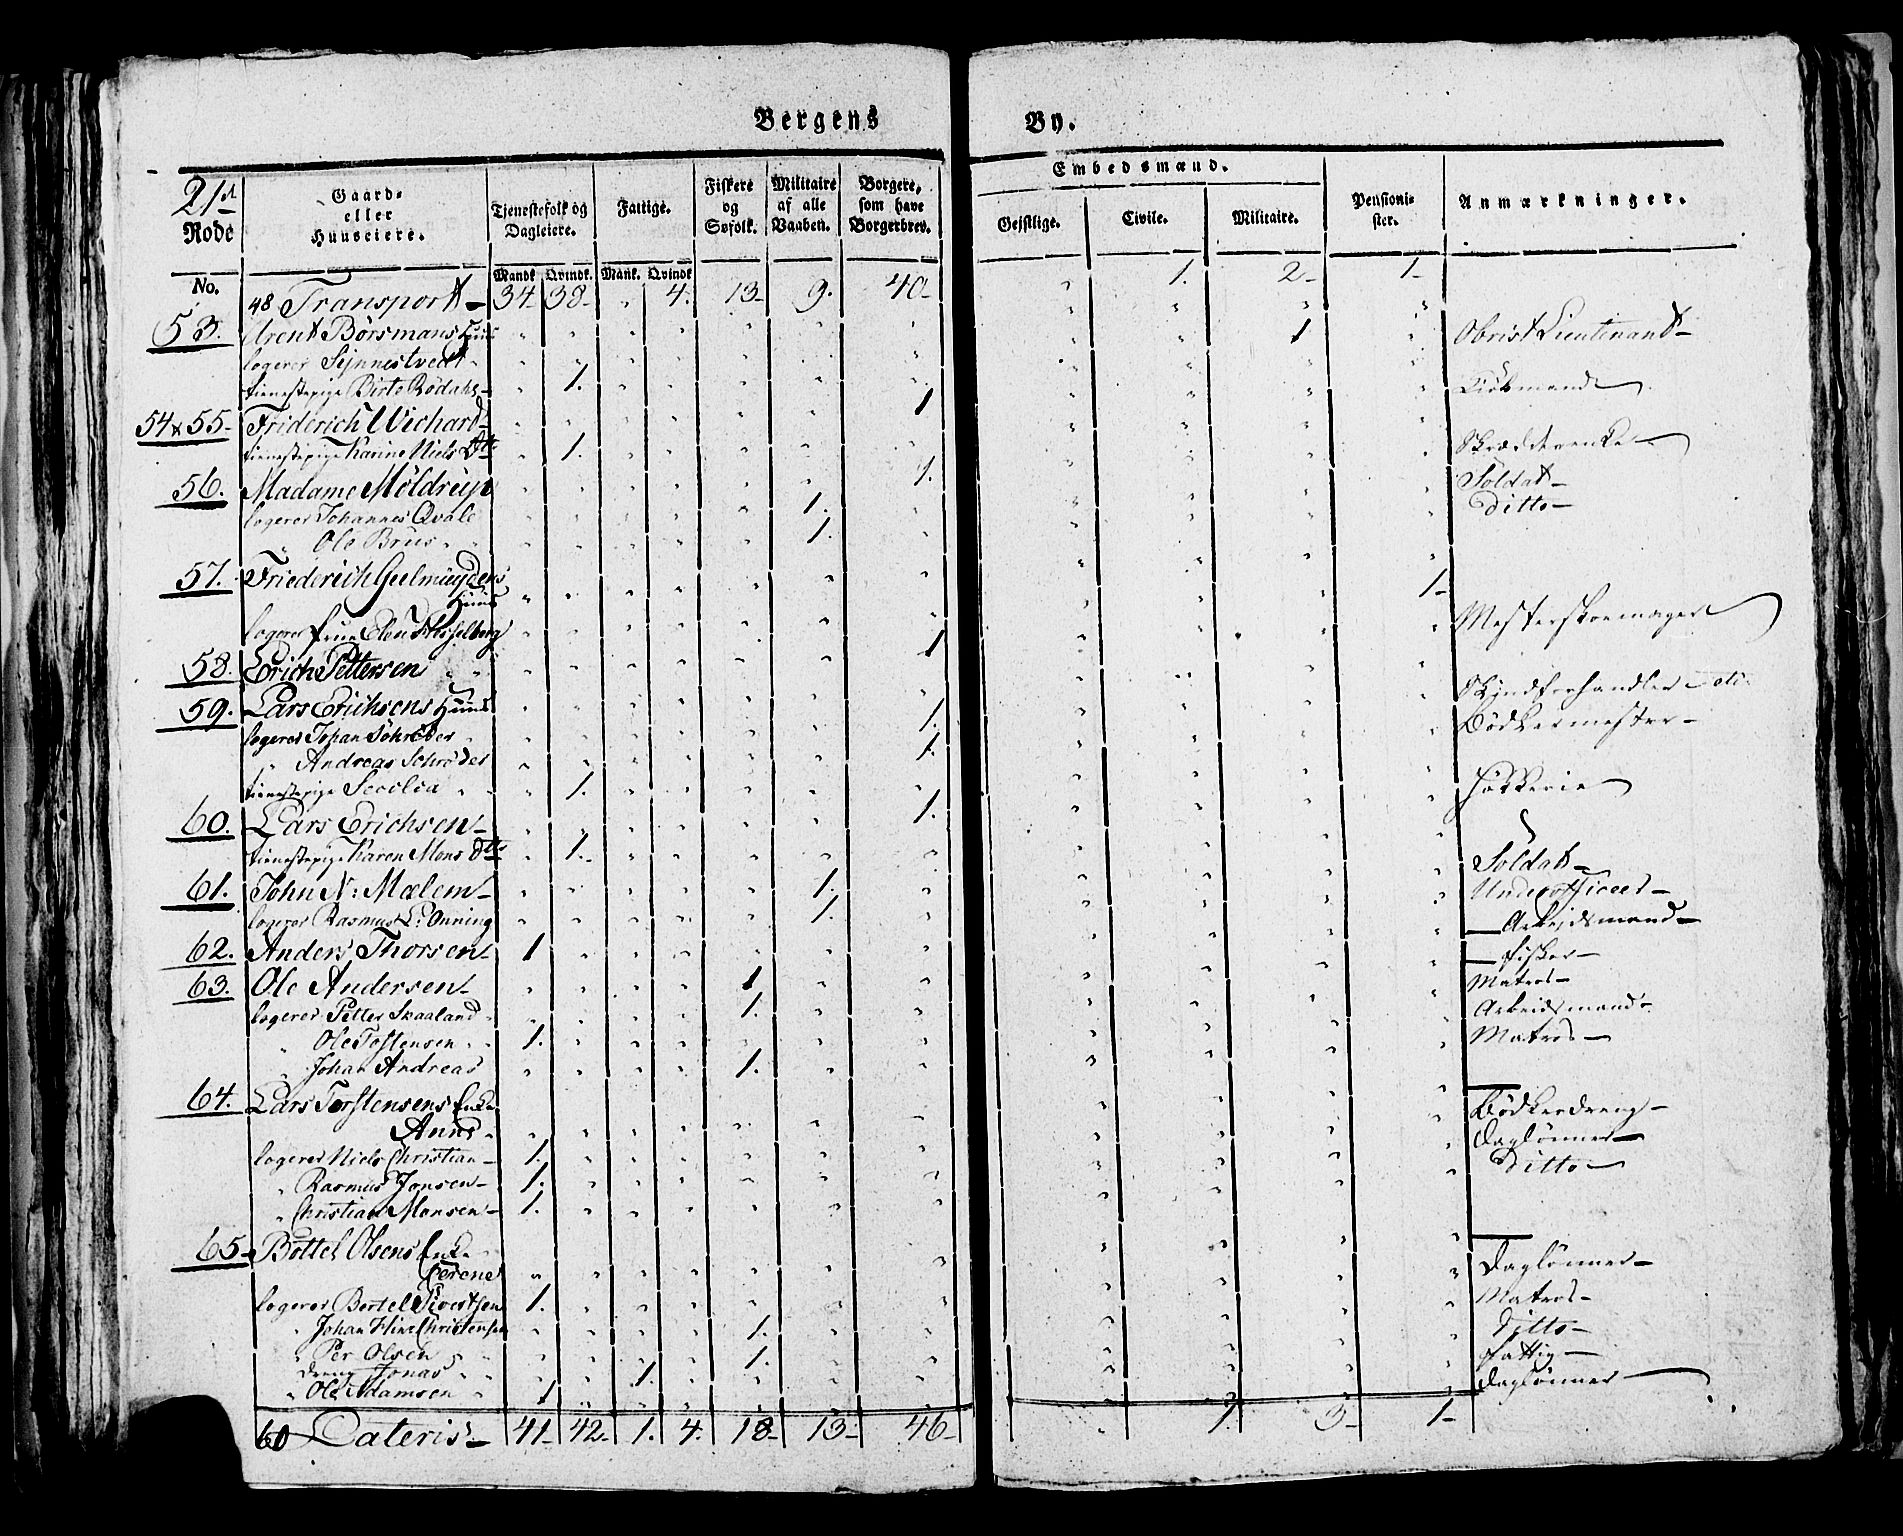 Bergens By.
21de Rode
No.
Gaard- eller Huuseiere.
Tjenestefolk og Dagleiere.
Mandk. Qvindk.
Fattige.
Mank. Qvindk.
Fiskere og Søfolk.
Militaire af alle Vaaben.
Borgere, som have Borgerbrev.
Embedsmænd.
Geistlige. Civile. Militaire.
Pensionister.
Anmærkninger.
48 Transport 34 38 " 4. 13 9. 40 " 1. 2 1
53. Arent Börsmans Huus
logerer Sÿnnestvedt 1 Obrist Lieutenant
tienestepige Birte Rödahl 1.
54 & 55 Friderich Wichard 1 Kiöbmand
tienestepige Karine Niels Dtr 1.
56. Madame Möldrup 1. Skrædderenke
logerer Johannes Qvale 1. Soldat
" Ole Brus 1. Ditto
57. Friederich Geelmuydens Huus
logerer frue Elen Hesselberg 1
58. Erich Pettersen 1 Mesterskoemager
59. Lars Erichsens Huus
logerer Johan Schröder 1. Skindforhandler
" Andreas Schröder 1. Bödkermester
tienestepige 1.
60. Lars Erichsen 1. Høkkerie
tienestepige Karen Mons Dtr 1.
61. John N: Mælem 1. Soldat
logerer Rasmus L: Onning 1. Underofficeer
62. Anders Thorsen 1 Arbeidsmand
63. Ole Andersen 1 fisker
logerer Petter Skaaland 1. Matros
" Ole Tostensen 1. Arbeidsmand
" Johan Andreas 1. Matros
64. Lars Torstensens Enke
Anne
logerer Niels Christian 1. Bödkerdreng
" Rasmus Jonsen 1. Daglönner
" Christian Monsen 1. Ditto
65 Bottel Olsens Enke
Serene
logerer Bertel Sivertsen 1. Daglönner
" Johan Hinr Christensen 1. Matros
" Per Olsen 1. Ditto
dreng Jonas 1. fattig
" Ole Adamsen 1 Daglönner
60 Lateris 41 42 1. 4. 18 13 46 1. 3 1